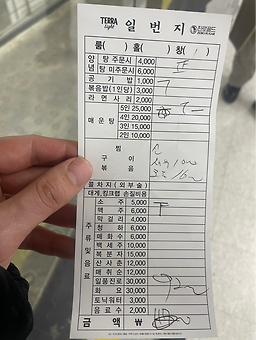 TERRA light 일번지 진로골드
룸( ) 홀( ) 창( )
양념 탕 주문시 4,000 正
탕 미주문시 6,000
공기밥 1,000
볶음밥(1인당) 3,000
라면사리 2,000
매운탕
5인 25,000
4인 20,000
3인 15,000
2인 10,000
찜
구이
콜차지(외부술)
대게,킹크랩 손질비용
주류 및 음료
소주 5,000 T
맥주 6,000
막걸리 4,000
청하 6,000
매화수 6,000
백세주 10,000
복분자 15,000
산사춘 12,000
매취순 12,000
일품진로 30,000
화요 30,000
토닉워터 3,000
음료수 2,000
금액 ₩